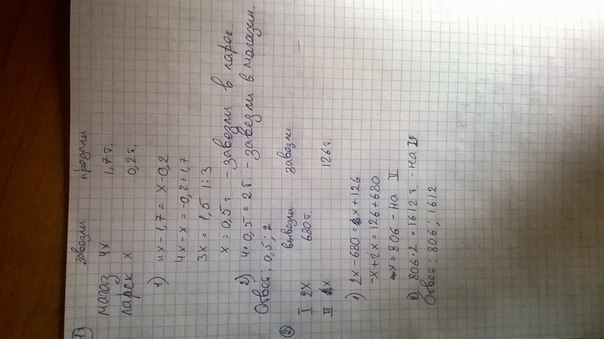 1)
завезли продали
магаз 4х 1,7т.
ларёк х 0,2т.
1) 4х-1,7 = х-0,2
4х-х = -0,2+1,7
3х = 1,5 |:3
х = 0,5т. - завезли в ларёк
2) 4·0,5 = 2т. - завезли в магазин.
Ответ: 0,5; 2
2)
вывезли завезли
I 2х 680т.
II х 126т.
1) 2х-680 = х+126
-х+2х = 126+680
х = 806 - на II
2) 806·2 = 1612т. - на I
Ответ: 806; 1612